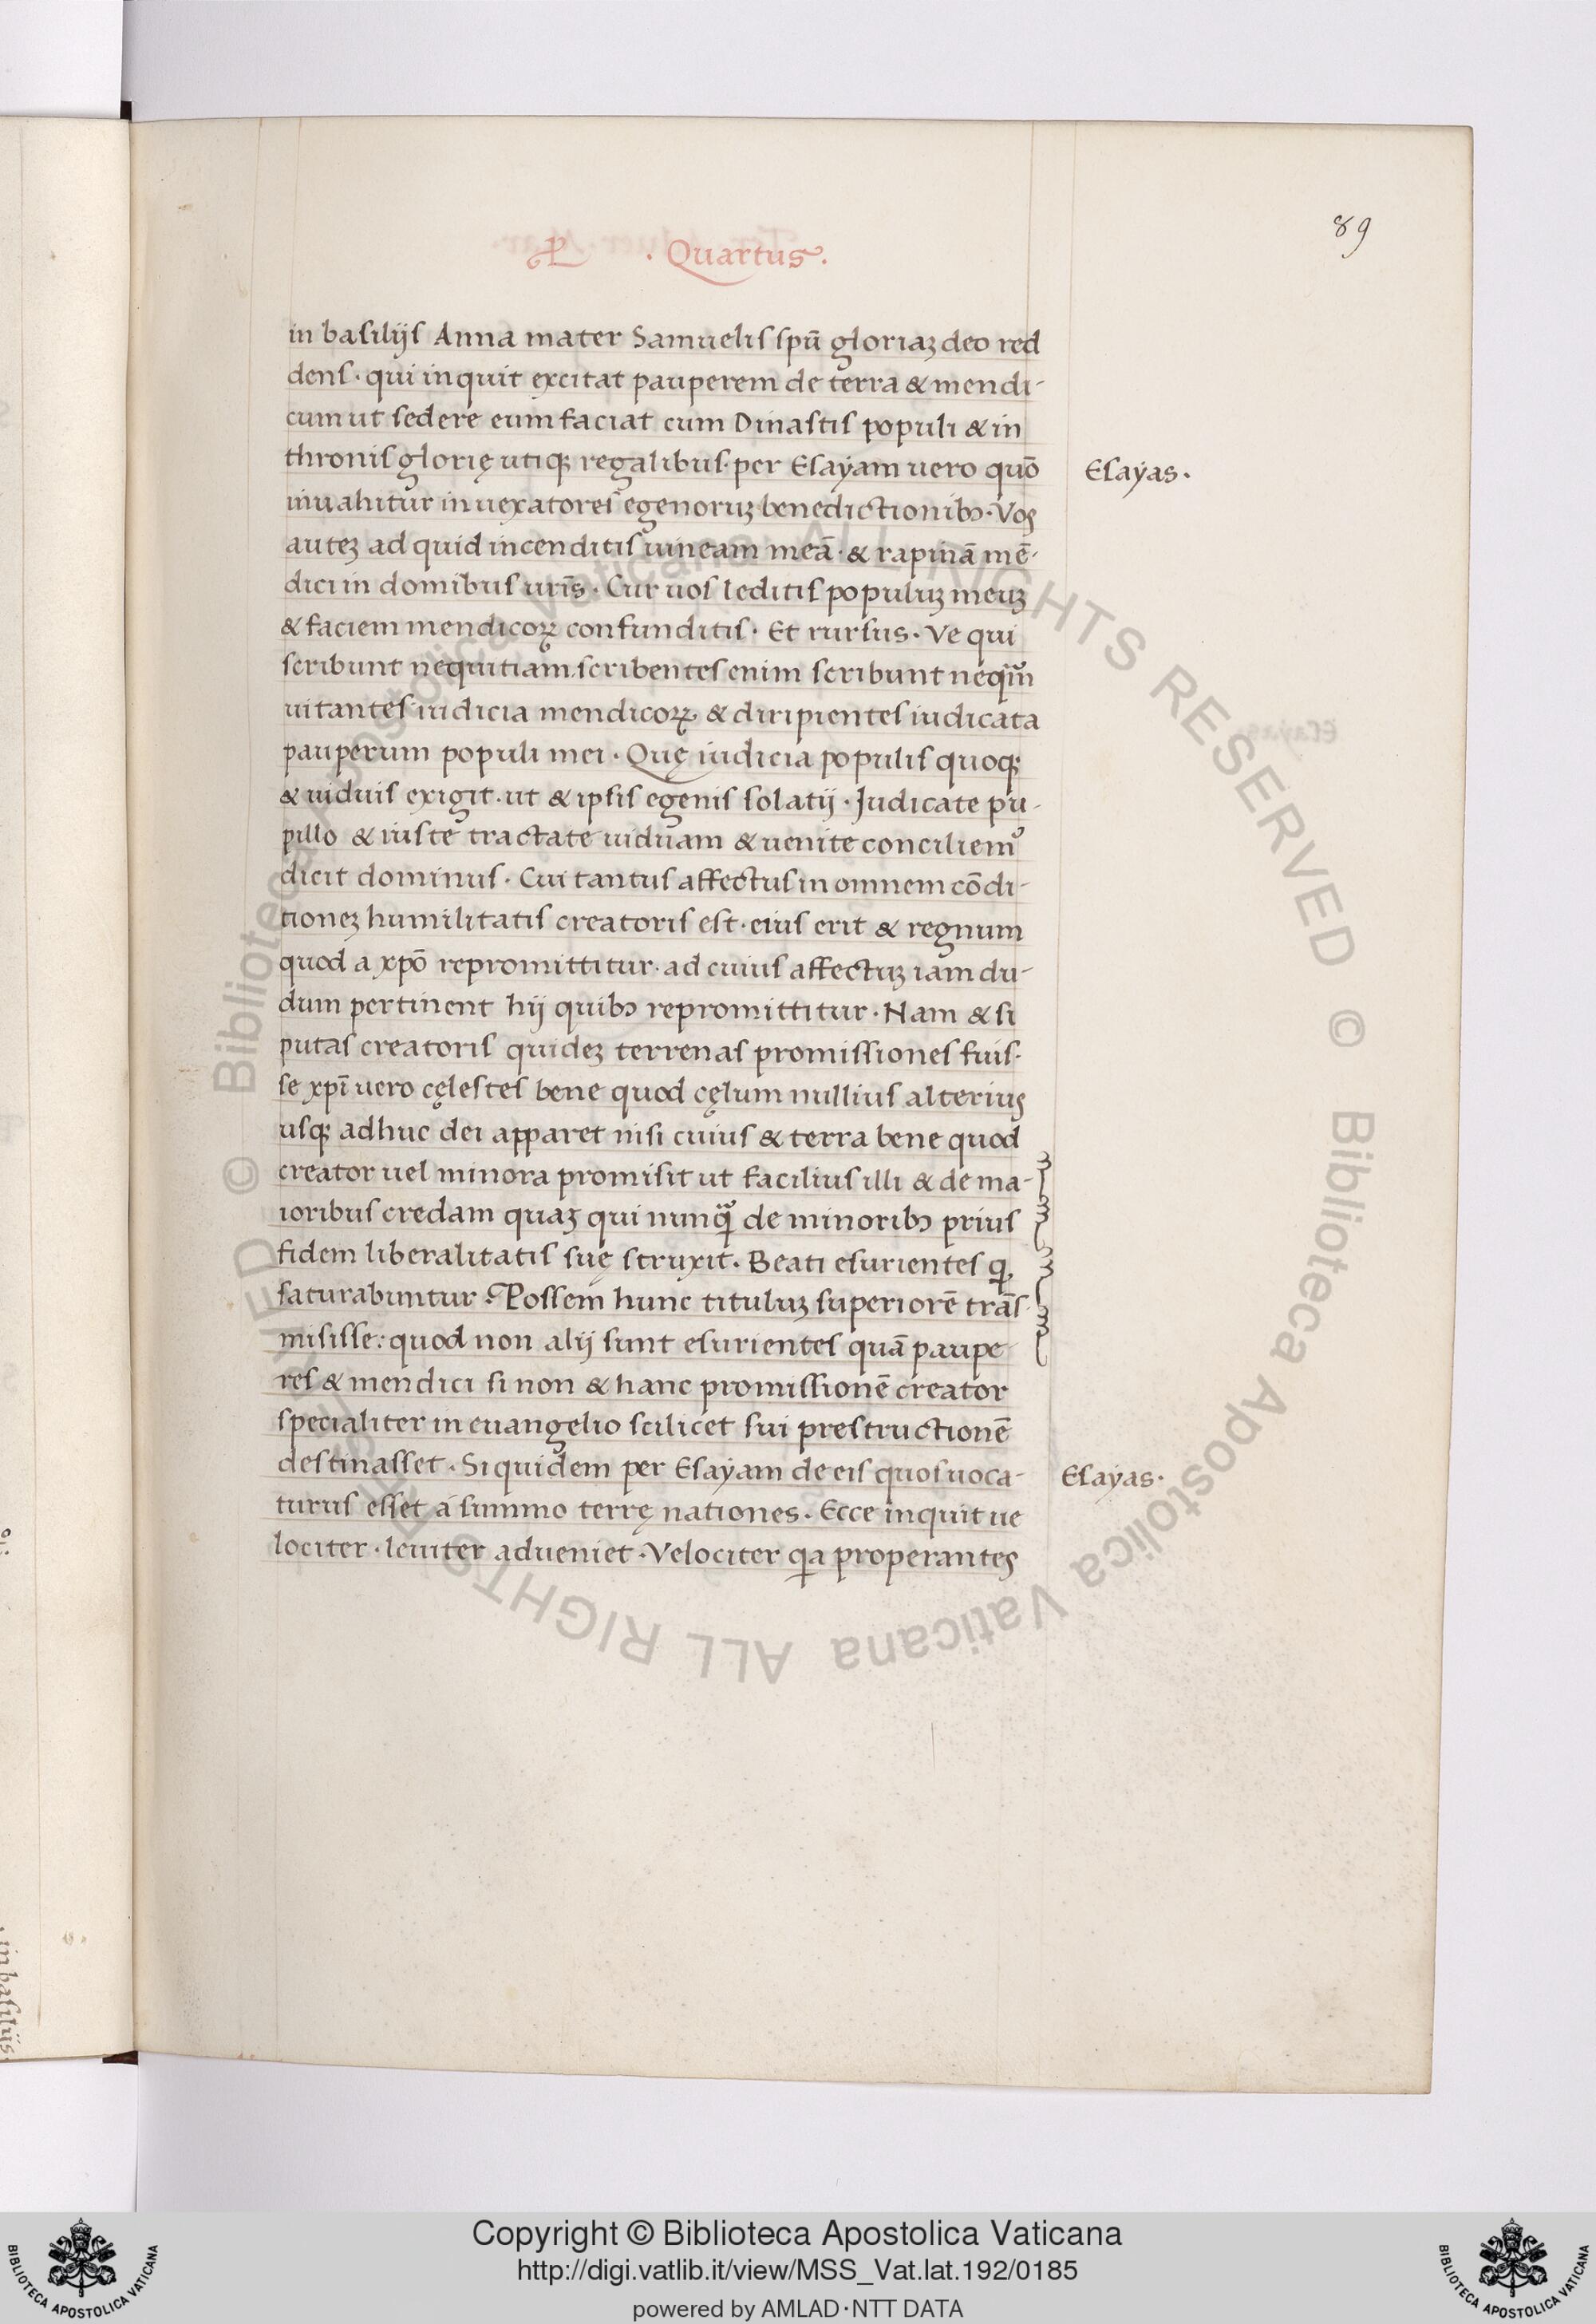 89
. Quartus.
in basilijs Anna mater Samuelis spū gloriaꝫ deo red
dens · qui inquit excitat pauperem de terra & mendi-
cum ut sedere eum faciat cum Dinastis populi & in
thronis glorię utiqꝫ regalibus · per Esayam uero quō
Esayas.
inuahitur in uexatores egenoruꝫ benedictionibꝫ · Vos
auteꝫ ad quid incenditis uineam meā · & rapinā mē-
dici in domibus ur̄is · Cur uos leditis populuꝫ meuꝫ
& faciem mendicoꝝ confunditis · Et rursus · Ve qui
scribunt nequitiam scribentes enim scribunt neq̄m
uitantes iudicia mendicoꝝ & diripientes iudicata
pauperum populi mei · Quę iudicia populis quoqꝫ
& uiduis exigit · ut & ipsis egenis solatij · Judicate pu-
pillo & iuste tractate uiduam & uenite conciliemꝰ
dicit dominus · Cui tantus affectus in omnem cōdi-
tioneꝫ humilitatis creatoris est · eius erit & regnum
quod a xpō repromittitur · ad cuius affectuꝫ iam du-
dum pertinent hij quibꝫ repromittitur · Nam & si
putas creatoris quideꝫ terrenas promissiones fuis-
se xpī uero cęlestes bene quod cęlum nullius alterius
usqꝫ adhuc dei apparet nisi cuius & terra bene quod
creator uel minora promisit ut facilius illi & de ma-
ioribus credam quaꝫ qui nunqᷓ de minoribꝫ prius
fidem liberalitatis suę struxit · Beati esurientes qꝫ
saturabuntur · Possem hunc tituluꝫ superiorē trās
misisse: quod non alij sunt esurientes quā paupe
res & mendici si non & hanc promissionē creator
specialiter in euangelio scilicet sui prestructionē
destinasset · Siquidem per Esayam de eis quos uoca-
Esayas.
turus esset á summo terrę nationes · Ecce inquit ue
lociter · leuiter adueniet · Velociter qa properantes
Copyright © Biblioteca Apostolica Vaticana
http://digi.vatlib.it/view/MSS_Vat.lat.192/0185
powered by AMLAD·NTT DATA
BIBLIOTECA APOSTOLICA VATICANA
BIBLIOTECA APOSTOLICA VATICANA
© Biblioteca Apostolica Vaticana ALL RIGHTS RESERVED © Biblioteca Apostolica Vaticana ALL RIGHTS RESERVED